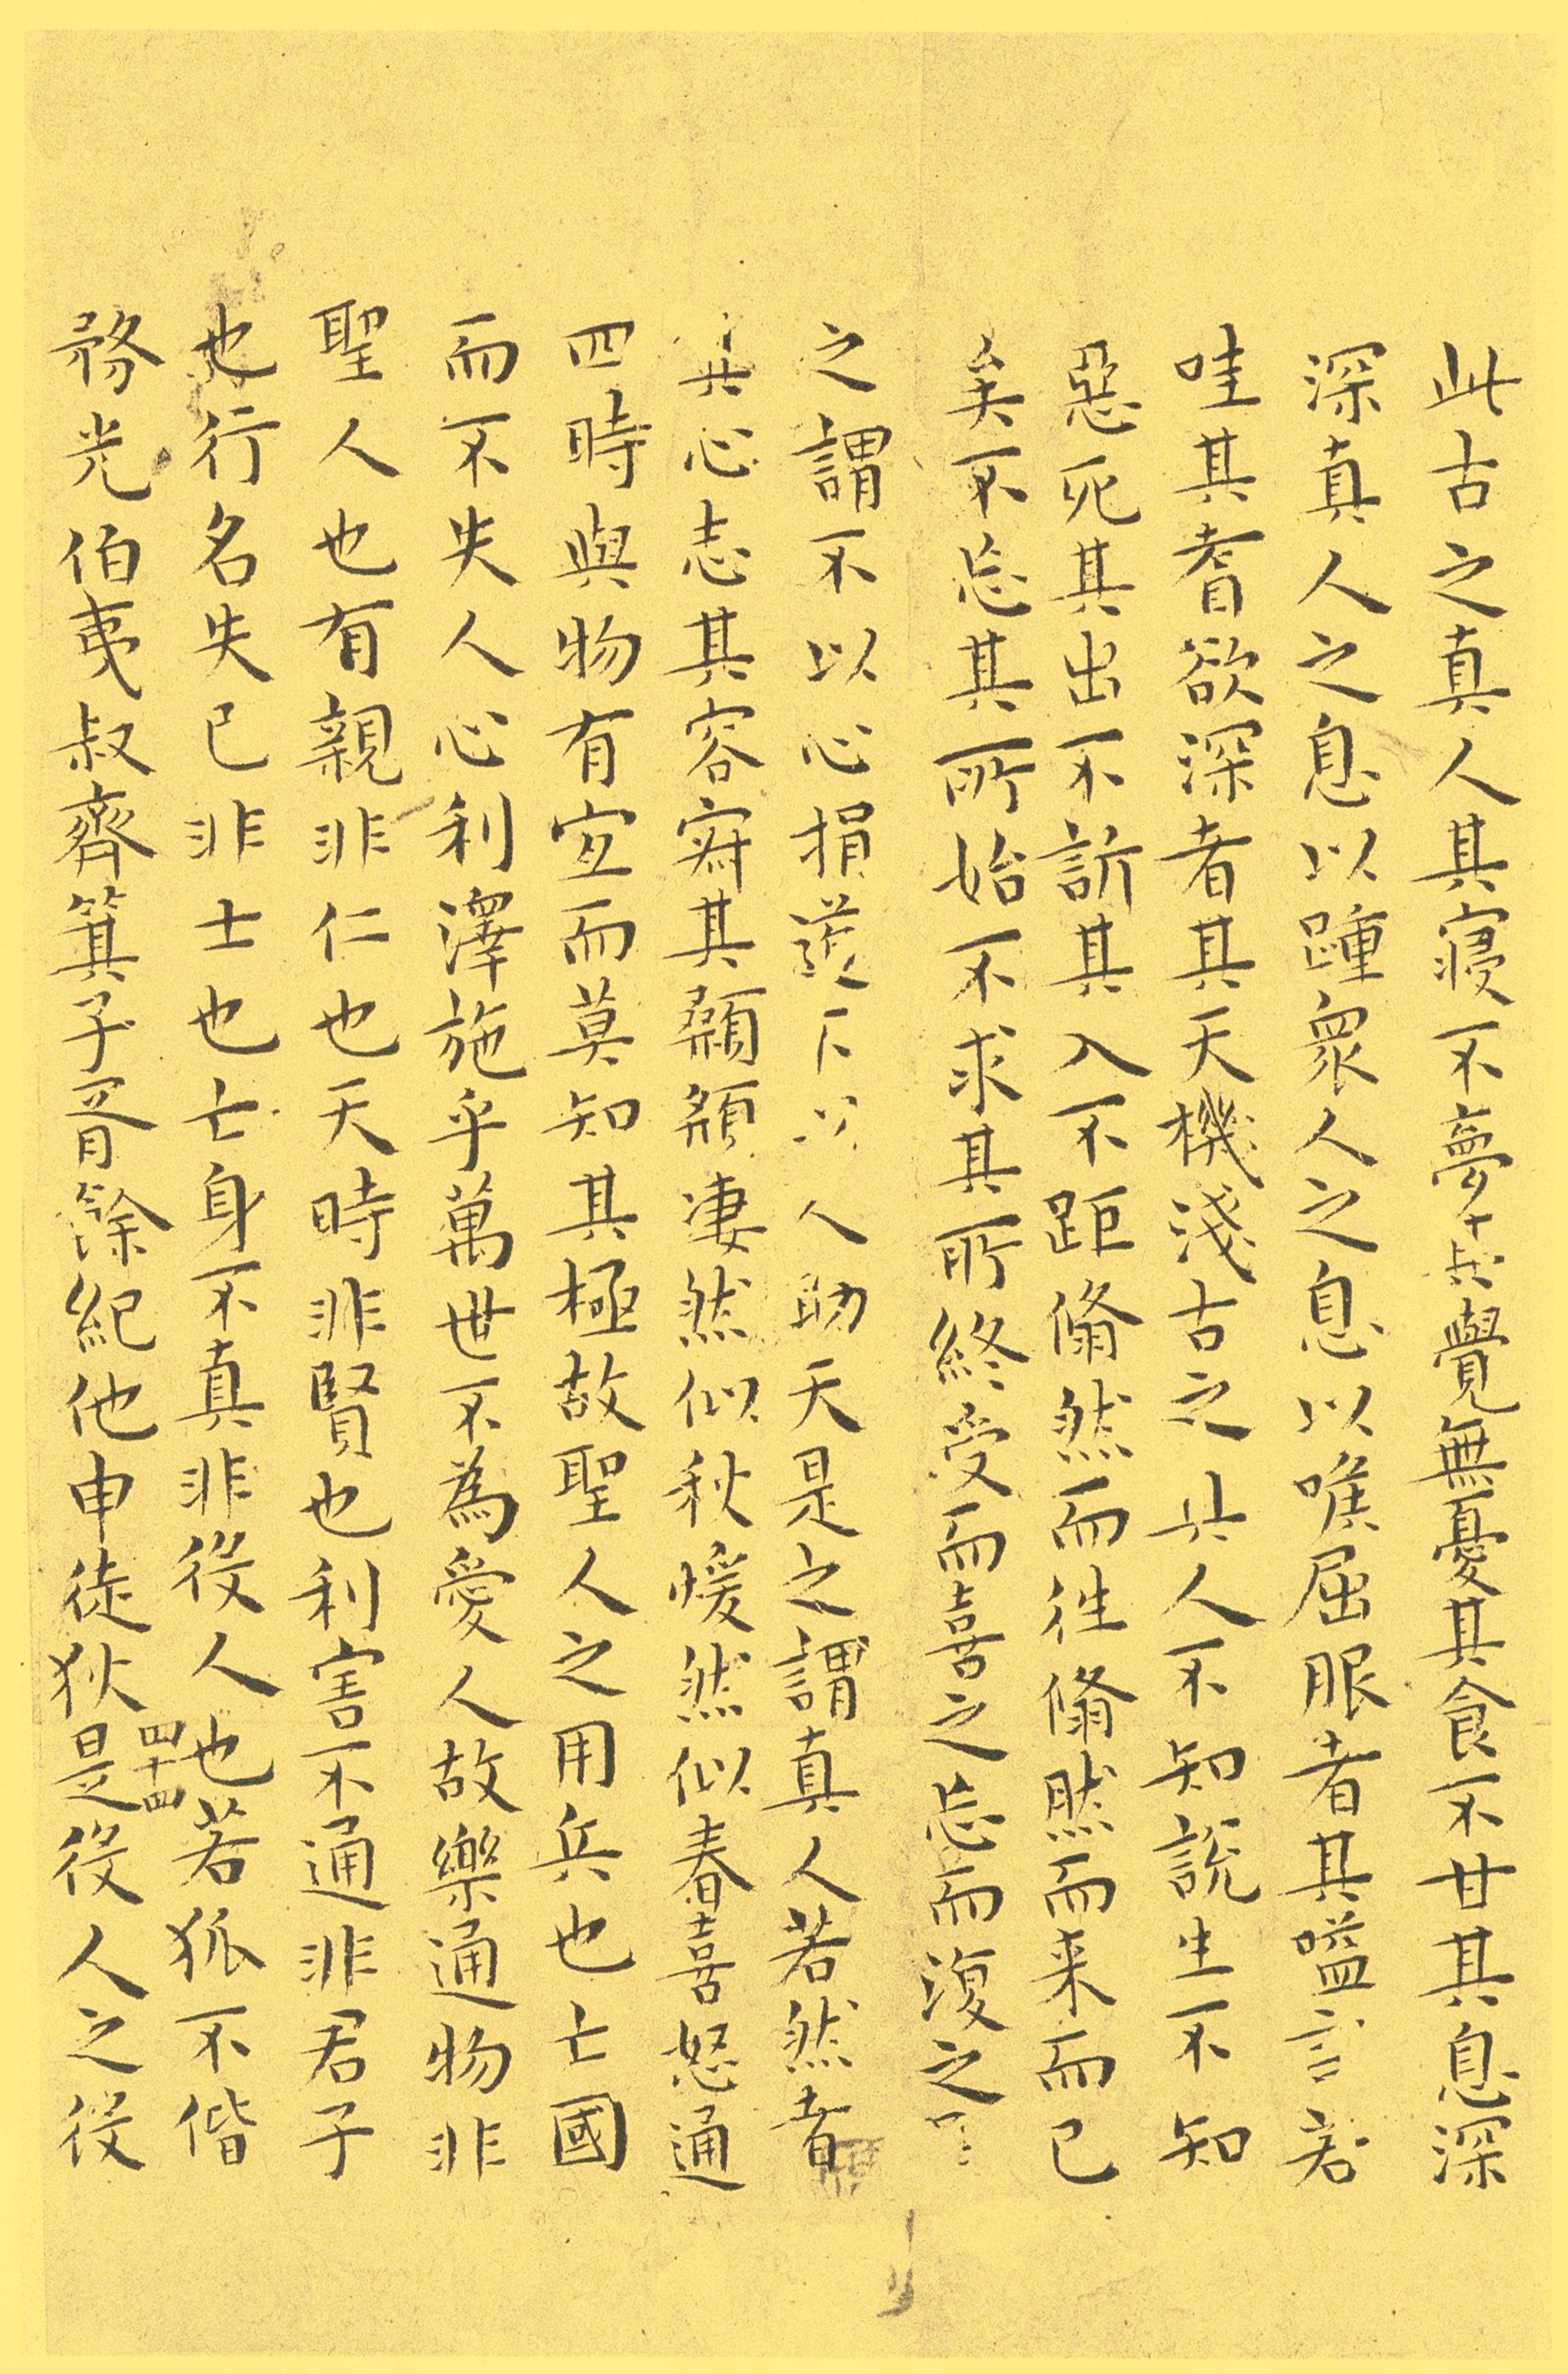 此古之真人其寢不夢其覺無憂其食不甘其息深
深真人之息以踵衆人之息以喉屈服者其嗌言若
哇其耆欲深者其天機淺古之真人不知說生不知
惡死其出不訢其入不距翛然而往翛然而来而已
矣不忘其所始不求其所終受而喜之忘而復之是
之謂不以心捐道不以人助天是之謂真人若然者
其心志其容寂其顙頯凄然似秋煖然似春喜怒通
四時與物有宜而莫知其極故聖人之用兵也亡國
而不失人心利澤施乎萬世不為愛人故樂通物非
聖人也有親非仁也天時非賢也利害不通非君子
也行名失己非士也亡身不真非役人也若狐不偕
務光伯夷叔齊箕子胥餘紀他申徒狄是役人之役
四十四